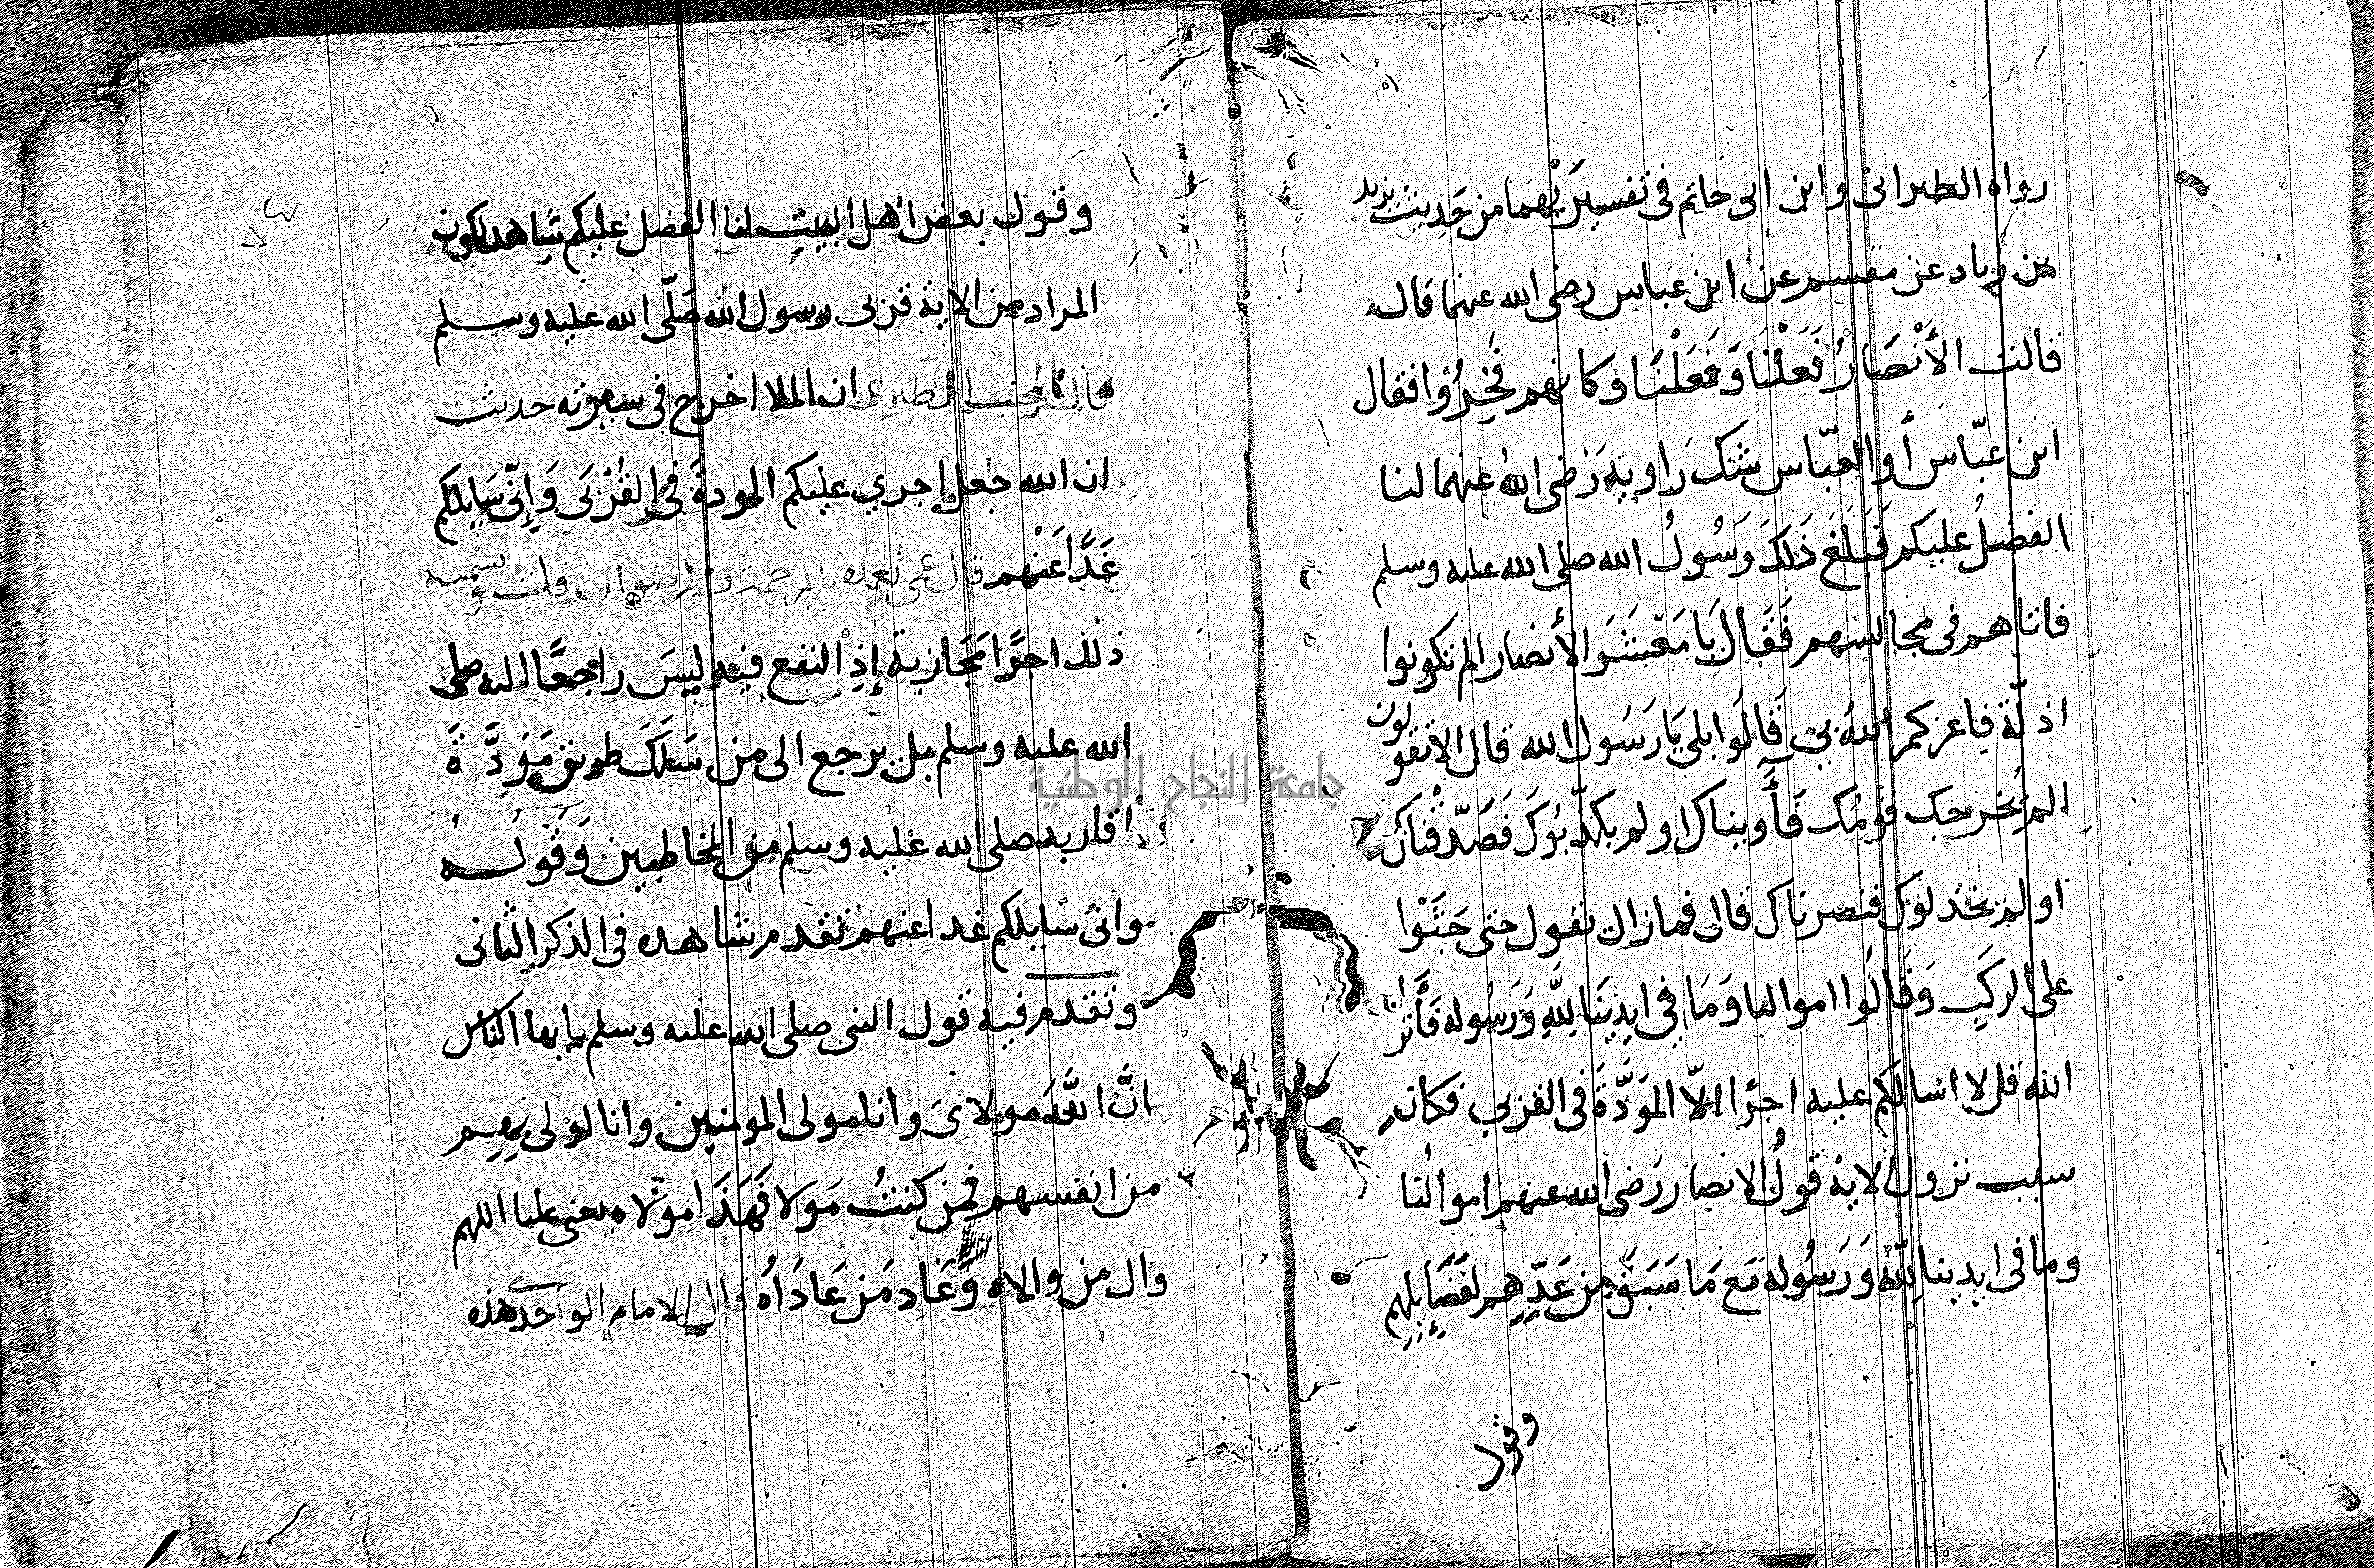 رواه الطبرانى وابن ابى حاتم فى تفسيرَيْهما من حَدِيث يزيد
بن زياد عن مقسم عن ابن عباس رضى الله عنهما قال
قالت الأَنْصَارُ فَعَلْنَا وَفَعَلْنَا وكانهم فَخِرُوْا فقال
ابن عبّاس أو العبّاس شَكَ رَاويه رَضى الله عنهما لنا
الفضلُ عليكم فَبَلَغَ ذَلكَ رَسُولُ الله صلى الله عليه وسلم
فاتاهم فى مجالسهم فَقَالَ يَا مَعْشَرَ الأنصار الم تكونوا
اذلّة فاعزكم اللهُ بى قَالُوا بلى يَا رَسَول الله قال الا تقولون
الم يُخرجك قومُك فَأَويناك او لم يكذّبُوكَ فَصَدّقْناك
او لم يخذلوك فنصرناك قال فما زال تقول حتى جَثَوْا
على الركَبِ وَقَالُوا اموالنا وَمَا فِي ايدِينَا لِلَّهِ وَرَسُوله فَأنزل
الله قل لا اسالكم عليه اجرًا الّا المَوَدَّةَ فى القربى فكان
سبب نزول الاية قولُ الانصار رَضى الله عنهم اموالُنا
وما فى ايدينا للّهِ وَرَسُوله مَع مَا سَبَقَ مِن عَدِّهِم لفَضَايِلِهِم
وقول
وقول بعض اهل البيت لنا الفضل عليكم شاهد لكون
المراد من الاية قربى رسول الله صَلّى الله عليه وسلم
قال المحب الطبرى ان الملا اخرج فى سيرته حديث
ان الله جعل اجري عليكم المودةَ فى القُرْبَى وَإِنّى سَايلكم
غَدًا عَنْهم قال وتسميه
ذلك اجرًا مَجَازية إذِ النفع فيه ليسَ راجعًا اليه صلى
الله عليه وسلم بل يرجع الى من سَلَكَ طريق مَوَدَّة
اقاربه صلى الله عليه وسلم من المخاطبين وَقَولُه
وانى سايلكم غدا عنهم تقدم شاهده فى الذكر الثانى
وتقدم فيه قول النبى صلى الله عليه وسلم يايها الناس
انَّ اللَّهَ مولاىَ وانا مولى المومنين وانا اولى بِهِم
من انفسهم فمن كنتُ مَولاه فَهَذَا مولاه يعنى عليا اللهم
وال من والاه وَعَادِ مَن عَادَاُه قال الامام الواحدى هذه
جامعة النجاح الوطنية